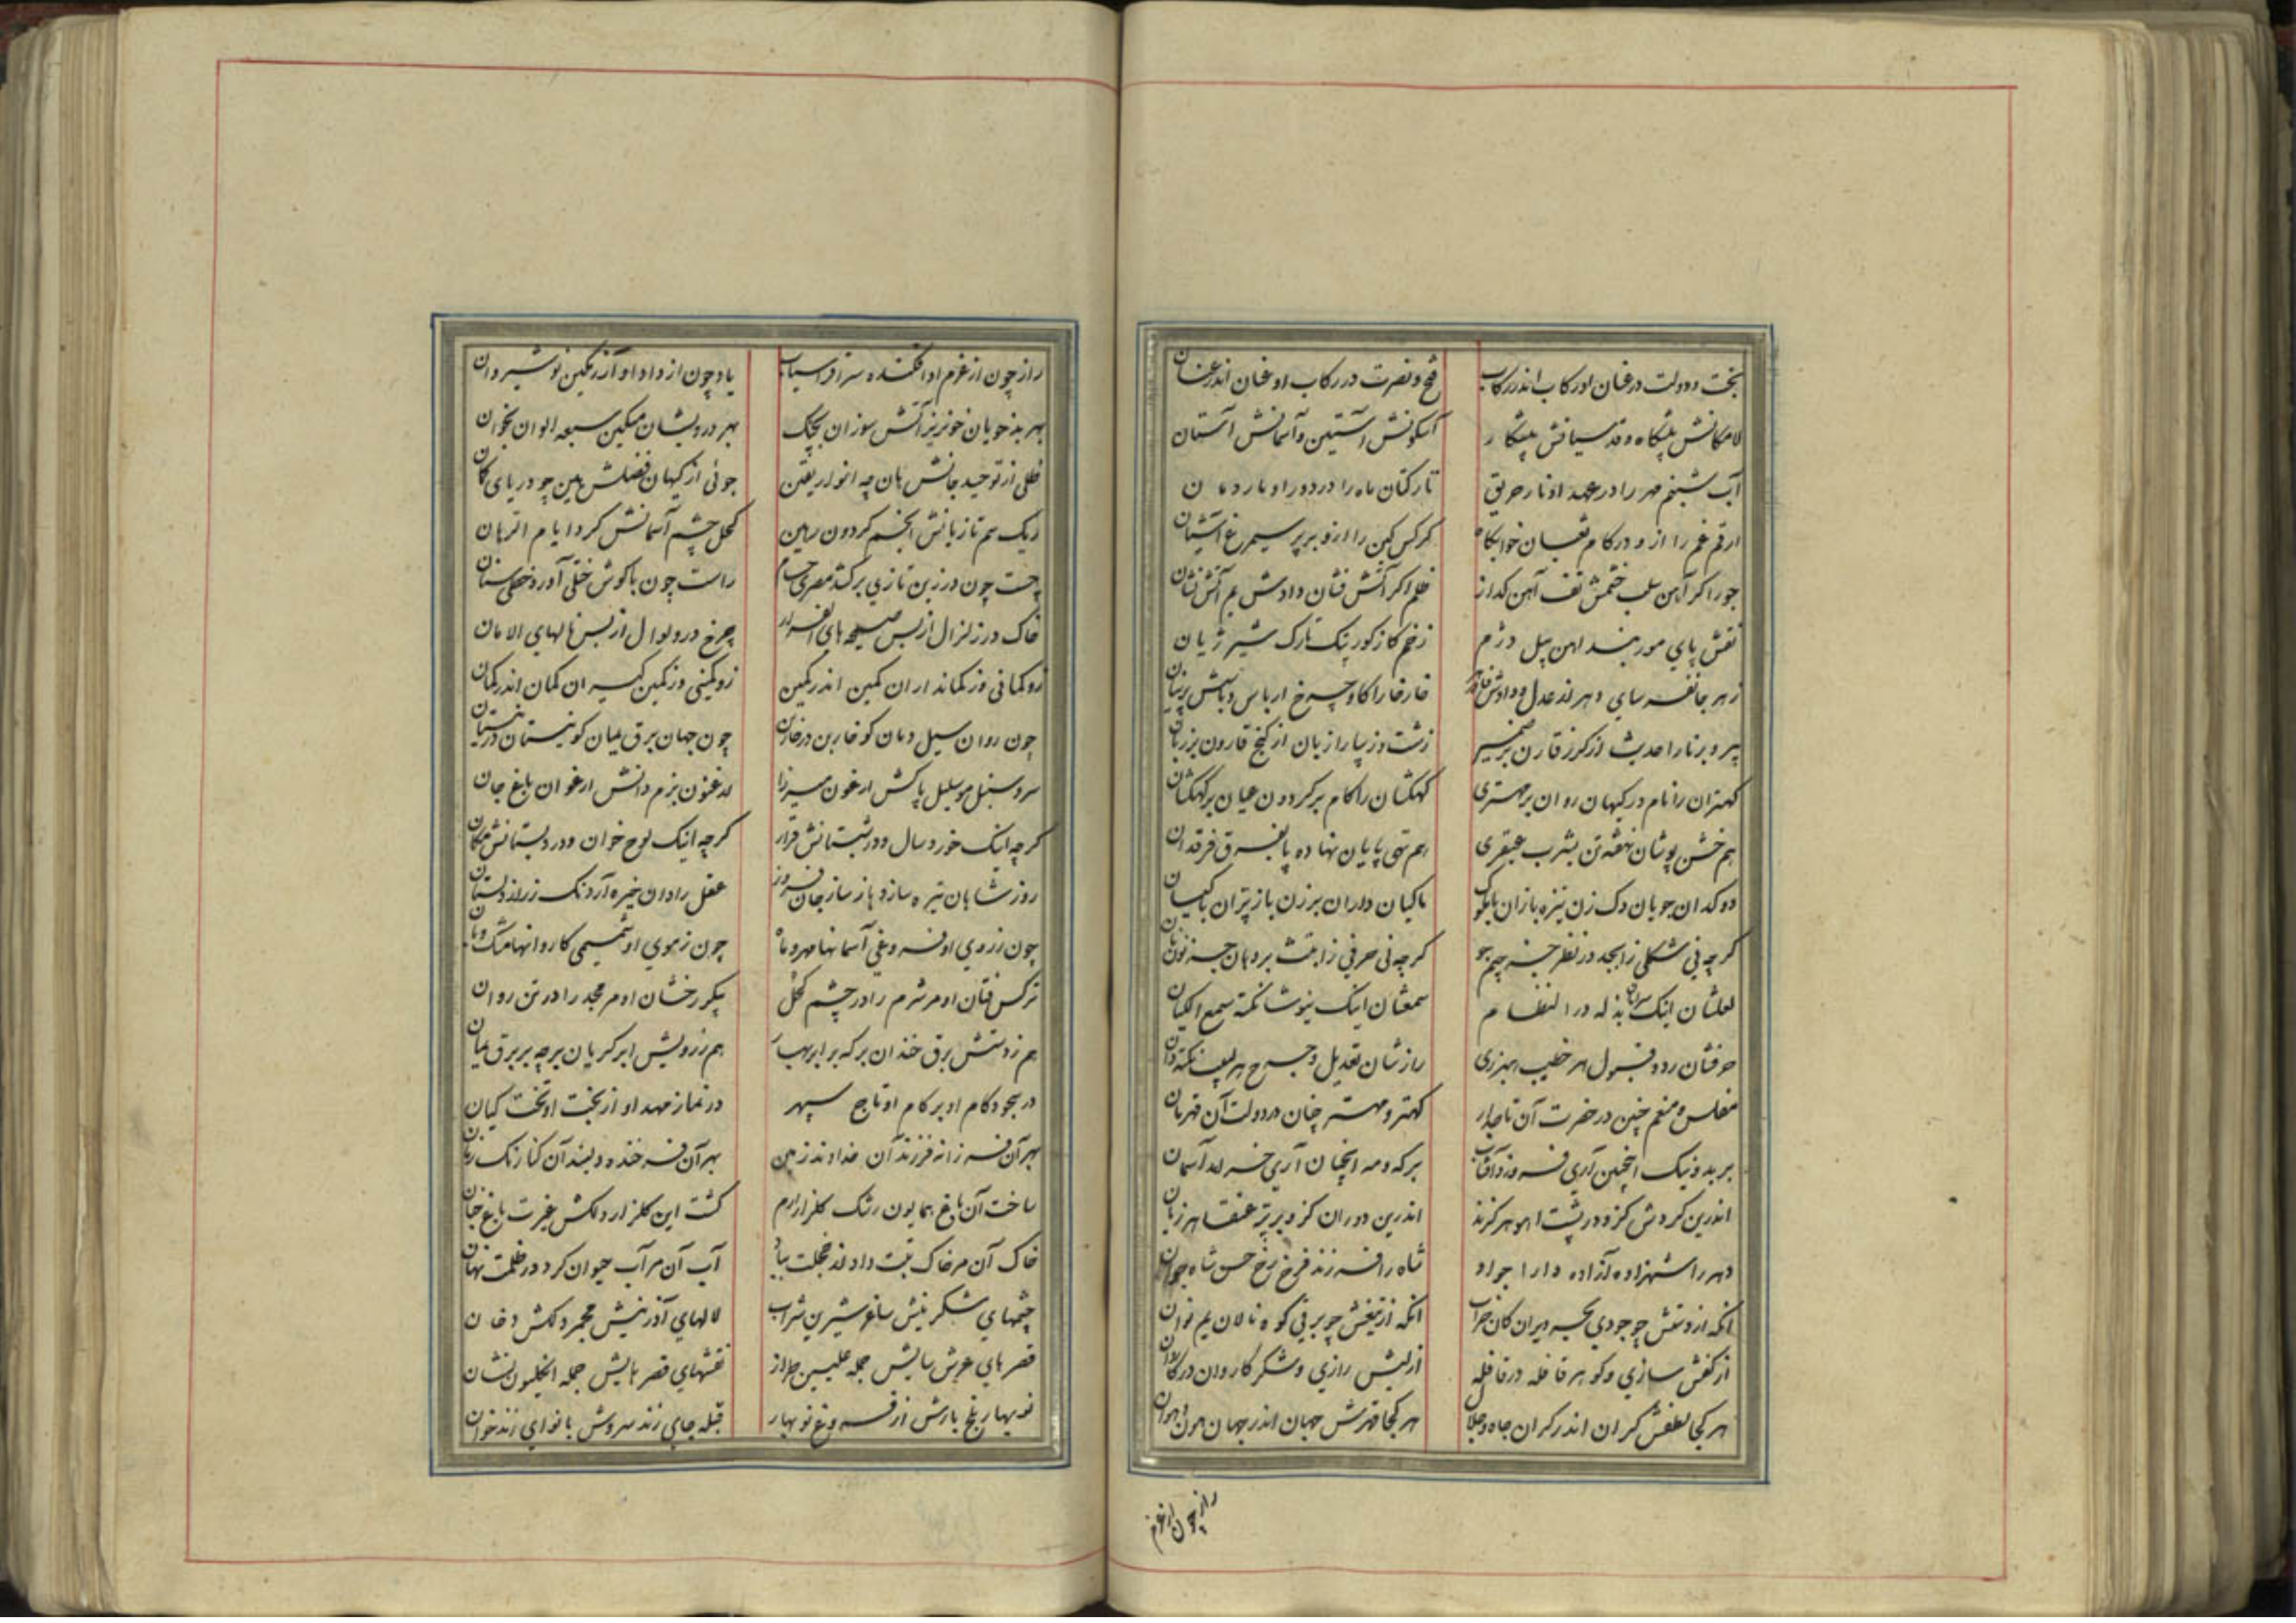 بخت و دولت در عنان او رکاب اندر رکاب فتح و نصرت در رکاب او عنان اندر عنان
لامکانش پیشگاه و قدسیانش پیشکار آستین و آسمانش آستان
آب شبنم مهر را در عهد او نار حریق تار کتان ماه را در دور او
ارقم غم را ازو در کام ثعبان خوابگاه کرکس کین را ازو بر پر سیمرغ آشیان
جور اگر آهن سلب خشمش تف آهن گداز ظلم اگر آتش فشان دادش یم آتش نشان
نقش پای مور بیند اهن پیل دژم زخم گاز گور تارک شیر ژیان
زهر جانفرسای دهر از عدل و دادش خار خارا کاو چرخ از باس و پرنیان
پیر و برنا را حدیث از گرز قارن بر ضمیر زشت و زیبا را زبان از گنج قارون بر زبان
کهتران را نام در کیهان روان بر مهتری کهکشان را کام بر گردون عیان بر کهکشان
هم خشن پوشان نهفته تن بثرب عبقری هم تهی پایان نهاده پا بفرق فرقدان
دوکدان جویان دک زن نیزه بازان ماکیان داران برزن باز پران
گرچه نی شکلی ز ابجد در نظر جز جیم گرچه نی حرفی بر دهان جز نون
لعلشان اینک بذله در انتظام سمعشان اینک نیوشا نکته سمع الکیان
حرفشان رد و قبول هر خطیب هبرزی رازشان تعدیل و جرح هر لبیب نکته دان
مفلس و منعم چنین در حضرت آن تاجدار کهتر و مهتر چنان در دولت آن قهرمان
بر بد و نیک اینچنین آری فروزد آفتاب بر که و مه آنچنان آری خرامد آسمان
اندرین گردش کزو در پشت آهو هر گزند اندرین دوران کزو بر پر عنقا هر زیان
دهر را شهزاده آزاده دارا جواد شاه را فرزند فرخ رخ حسن شاه جوان
آنکه از دستش چو جودی بحر ویران کان خراب آنکه از تیغش چو بر نی کوه نالان یم نوان
از کفش سازی و گوهر قافله در قافله از لبش رازی و شکر کاروان در کاروان
هر کجا لطفش کران اندر کران جاه و جلال هر کجا قهرش جهان اندر جهان هون و هوان
راز چون از عزم
راز چون از عزم او افکنده سر افراسیاب یاد چون از داد او آزرمگین نوشیروان
بهر بدخویان خونریز آتش سوزان بچنگ بهر درویشان مسکین سبعه الوان بخوان
ظلی از توحید جانش هان چه انوار یقین جوئی از کیهان فضلش هین چو دریای کان
ریک سم تازیانش انجم گردون رهین کحل چشم آسمانش گرد ایام
چست چون در زین تازی برکشد مصری حسام راست چون با گوش ختلی آورد خطی سنان
خاک در زلزال از بس صیحه های الفرار چرخ در ولوال از بس نالهای الامان
زو کمانی وز کمانداران کمین اندر کمین زو کمینی وز کمین گیران کمان اندر کمان
چون روان سیل دمان کو خاربن در خاربن چون جهان برق یمان کو نیستان در نیستان
سرو سنبل مو سلیل پاکش ارغون میرزا ارغنون بزم دانش ارغوان باغ جان
گرچه اینک خورد سال و در شبستانش قرار گرچه اینک لوح خوان و در دبستانش مکان
روز شاهان تیره سازد باز ساز جان فروز عقل رادان خیره آرد
چون ز روی او فروغی آسمانها مهر و ماه چون ز موی او شمیمی کاروانها مشک و بان
نرگس فتان او مر شرم را در چشم کحل پیکر رخشان او مر مجد را در تن روان
هم ز دستش برق خندان بر که بر ابر بهار هم ز رویش ابر گریان بر چه بر برق یمان
در سجود کام او بر کام او تاج سپهر در نماز مهد او از بخت او تخت کیان
بهر آن فرزانه فرزند آن خداوند زمین بهر آن فرخنده دلبند آن کنارنگ زمان
ساخت آن باغ همایون رشک گلزار ارم گشت این گلزار دلکش غیرت باغ جنان
خاک آن مر خاک تبت داد اندر خجلت آب آن مر آب حیوان کرد در ظلمت نهان
چشمهای شکرینش ساغر شیرین شراب لالهای آذرینش مجمر دلکش دخان
قصرهای عرش سایش جمله علیین طراز نقشهای قصرهایش جمله انگلیون نشان
نوبهار بلخ بارش از فروغ نوبهار قبله جای زند سروش با نوای زند خوان